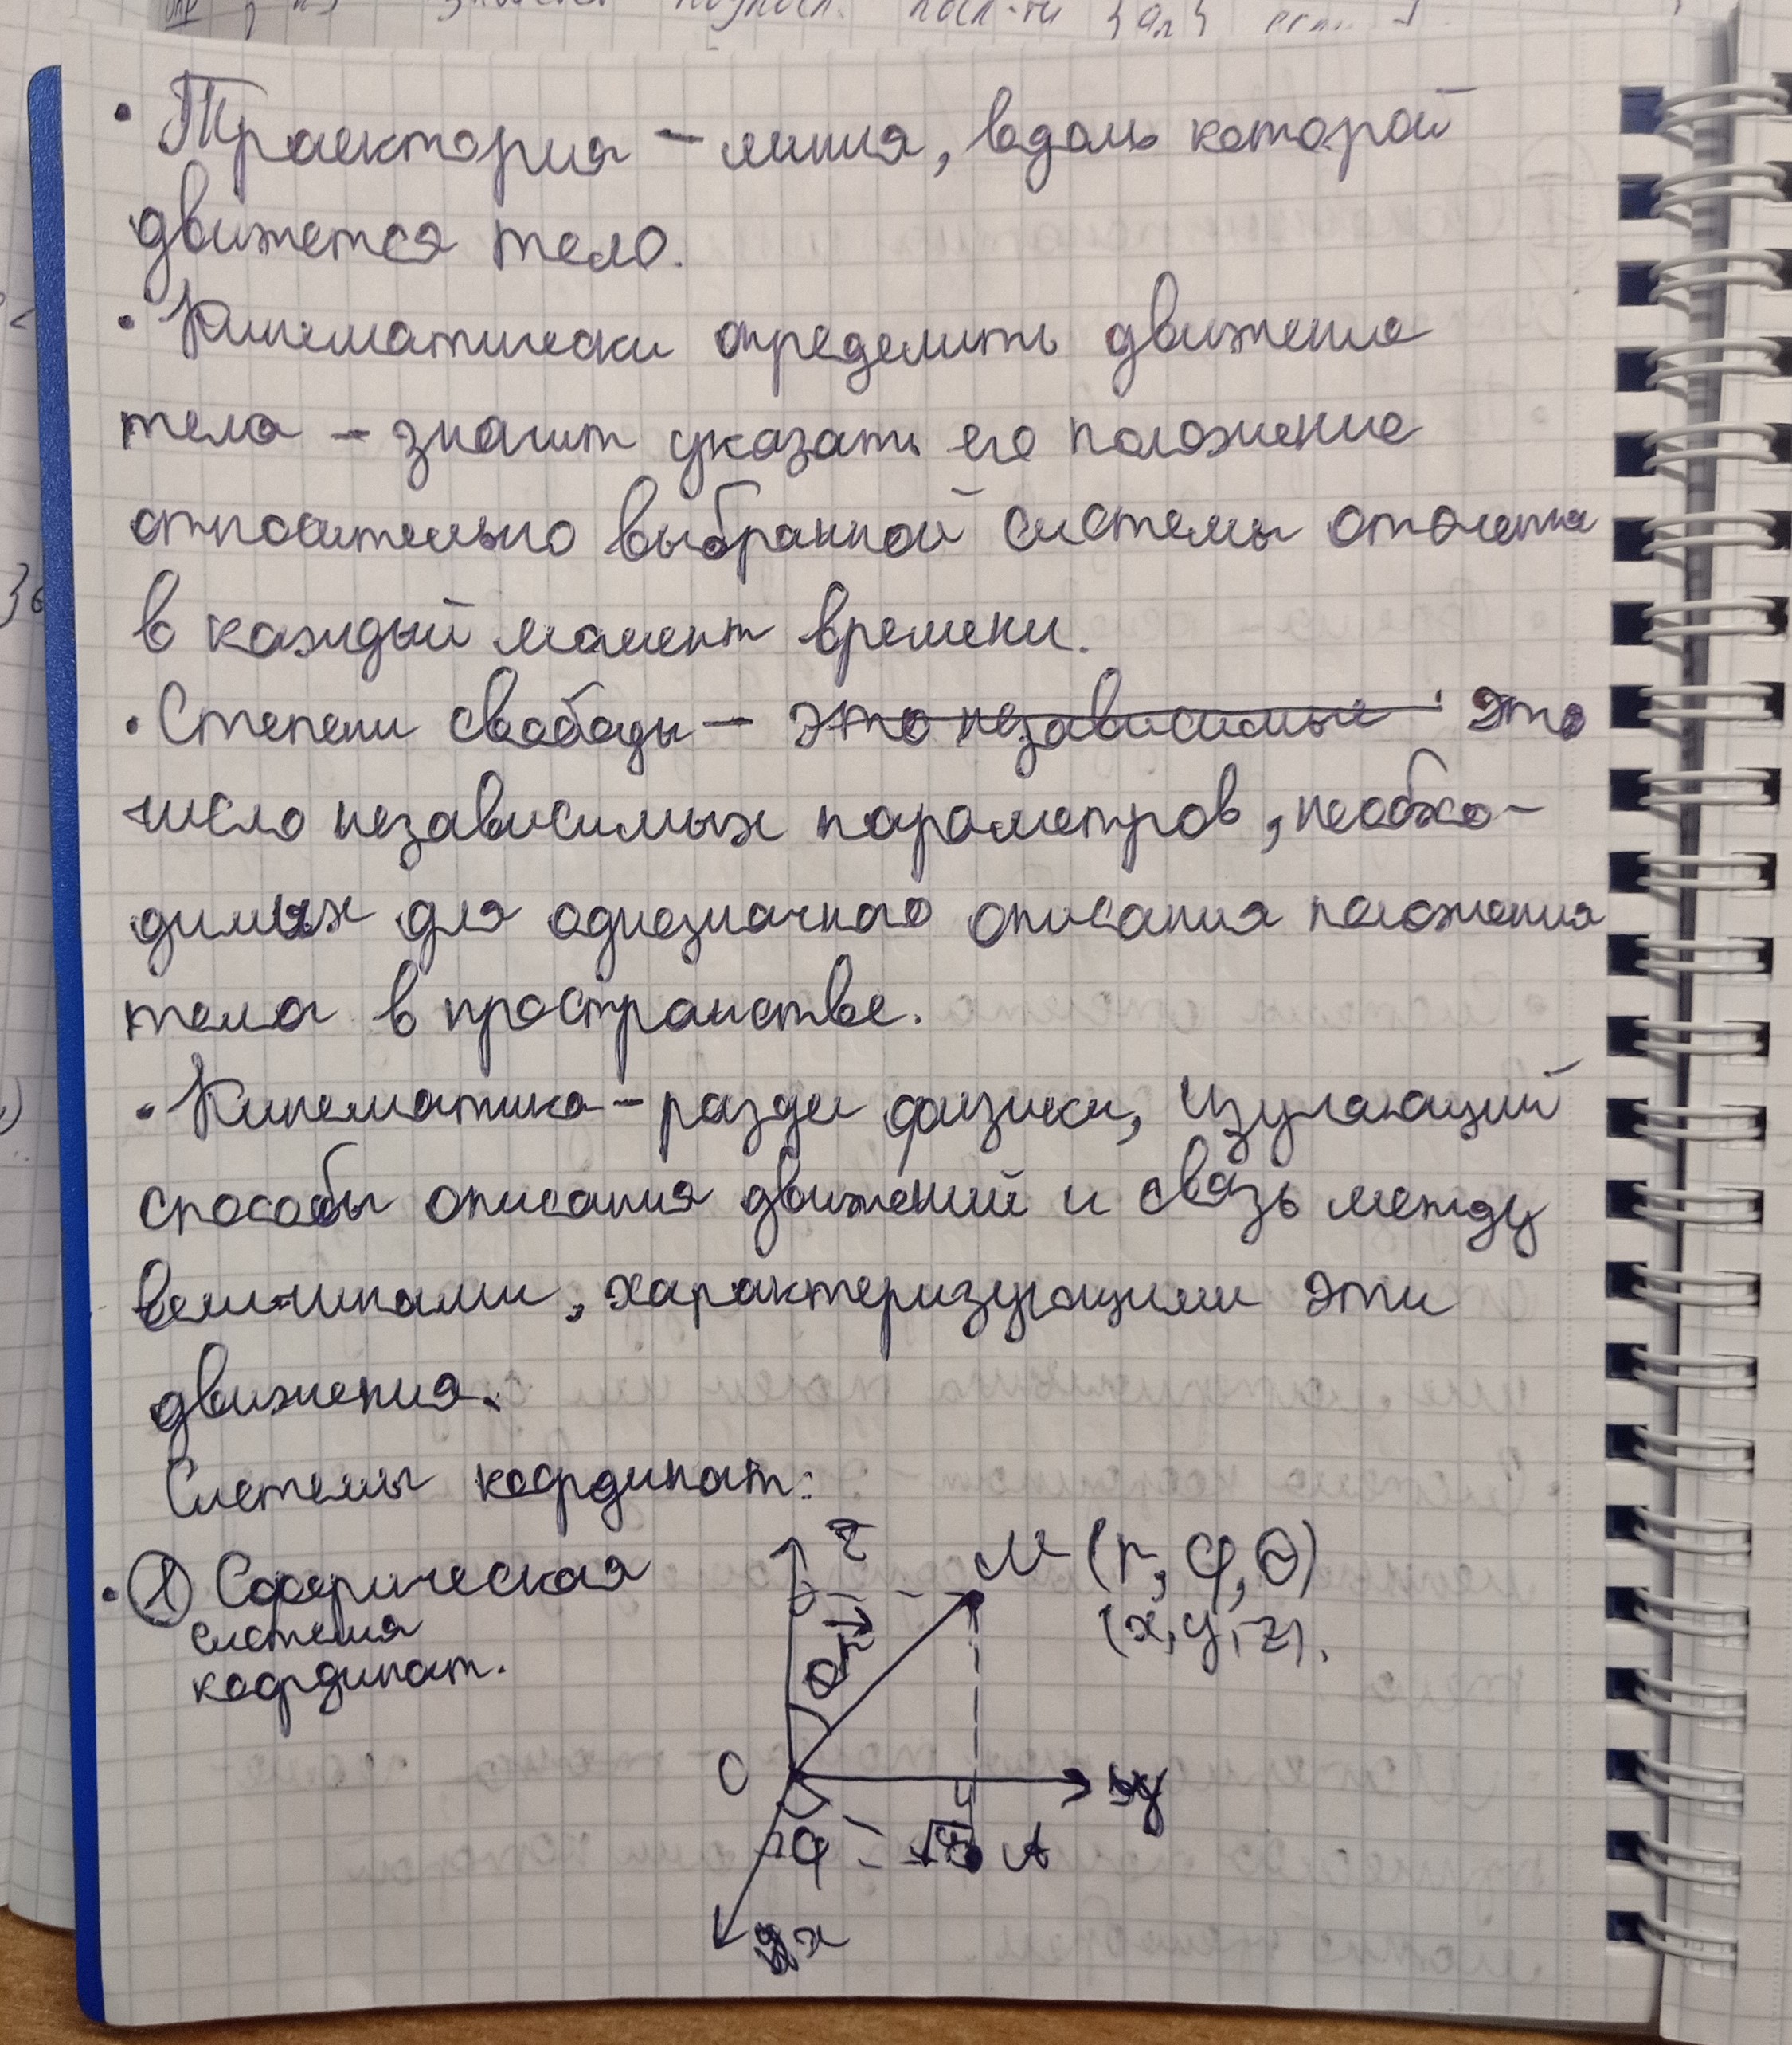 • Траектория – линия, вдоль которой
движется тело.
• Кинематически определить движение
тела – значит указать его положение
относительно выбранной системы отсчета
в каждый момент времени.
• Степени свободы – это независимые это
число независимых параметров, необхо-
димых для однозначного описания положения
тела в пространстве.
• Кинематика – раздел физики, изучающий
способы описания движений и связь между
величинами, характеризующими эти
движения.
Системы координат:
• ① Сферическая
система
координат.
z
M (r, φ, θ)
(x, y, z).
θ r
O
y
φ
A
x